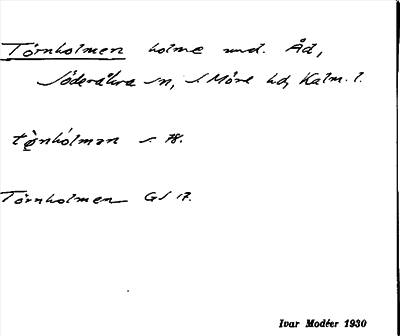 Törnholmen holme und. Åd,
Söderåkra sn, S. Möre hd, Kalm. l.
tö̀nhólmən s. 78.
Törnholmen GS 17.
Ivar Modéer 1930